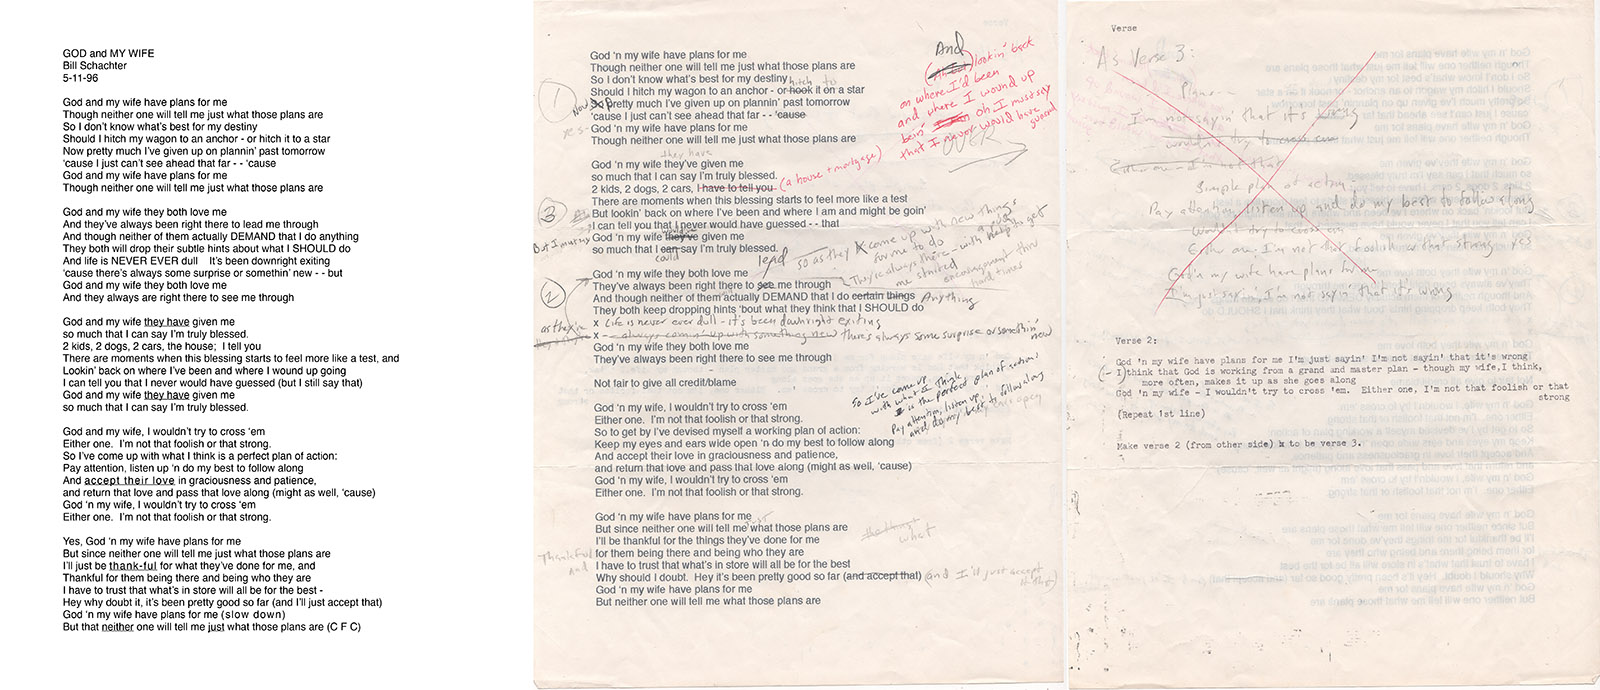 GOD and MY WIFE
Bill Schachter
5-11-96
God and my wife have plans for me
Though neither one will tell me just what those plans are
So I don't know what's best for my destiny
Should I hitch my wagon to an anchor - or hitch it to a star
Now pretty much I've given up plannin' past tomorrow
'cause I just can't see ahead that far - - 'cause
God and my wife have plans for me
Though neither one will tell me just what those plans are
God and my wife they both love me
And they've always been right there to lead me through
And though neither of them actually DEMAND that I do anything
They both will drop their subtle hints about what I SHOULD do
And life is NEVER EVER dull It's been downright exiting
'cause there's always some surprise or somethin' new - - but
God and my wife they both love me
And they always are right there to see me through
God and my wife they have given me
so much that I can say I'm truly blessed.
2 kids, 2 dogs, 2 cars, the house; I tell you
There are moments when this blessing starts to feel more like a test, and
Lookin' back on where I've been and where I wound up going
I can tell you that I never would have guessed (but I still say that)
God and my wife they have given me
so much that I can say I'm truly blessed.
God and my wife, I wouldn't try to cross 'em
Either one. I'm not that foolish or that strong.
So I've come up with what I think is a perfect plan of action:
Pay attention, listen up 'n do my best to follow along
And accept their love in graciousness and patience,
and return that love and pass that love along (might as well, 'cause)
God 'n my wife, I wouldn't try to cross 'em
Either one. I'm not that foolish or that strong.
Yes, God 'n my wife have plans for me
But since neither one will tell me just what those plans are
I'll just be thank-ful for what they've done for me, and
Thankful for them being there and being who they are
I have to trust that what's in store will all be for the best -
Hey why doubt it, it's been pretty good so far (and I'll just accept that)
God 'n my wife have plans for me (slow down)
But that neither one will tell me just what those plans are (C F C)
God 'n my wife have plans for me
Though neither one will tell me just what those plans are
So I don't know what's best for my destiny
hitch to
Should I hitch my wagon to an anchor - or hook it on a star
1
Now
pretty much I've given up on plannin' past tomorrow
'cause I just can't see ahead that far - - 'cause
God 'n my wife have plans for me
Though neither one will tell me just what those plans are
And
lookin' back
on where I'd been
and where I wound up
bein' oh I must say
that I never would have
guessed
OVER
they have
God 'n my wife they've given me
so much that I can say I'm truly blessed.
2 kids, 2 dogs, 2 cars, I have to tell you (a house + mortgage)
There are moments when this blessing starts to feel more like a test
3
But lookin' back on where I've been and where I am and might be goin'
I can tell you that I never would have guessed - - that
But I must say
God 'n my wife they've given me
so much that I can say I'm truly blessed.
could
lead
so as they come up with new things
for me to do
They're always there - with help to get
me started
encouragement thru
hard times
2
God 'n my wife they both love me
They've always been right there to see me through
And though neither of them actually DEMAND that I do certain things Anything
They both keep dropping hints 'bout what they think that I SHOULD do
x Life is never ever dull - it's been downright exiting
x - always comin' up with something new there's always some surprise or somethin' new
God 'n my wife they both love me
They've always been right there to see me through
Not fair to give all credit/blame
So I've come up
with what I think
is the perfect plan of action:
Pay attention, listen up,
and do my best to follow along
God 'n my wife, I wouldn't try to cross 'em
Either one. I'm not that foolish or that strong.
So to get by I've devised myself a working plan of action:
Keep my eyes and ears wide open 'n do my best to follow along
And accept their love in graciousness and patience,
and return that love and pass that love along (might as well, 'cause)
God 'n my wife, I wouldn't try to cross 'em
Either one. I'm not that foolish or that strong.
God 'n my wife have plans for me
just
But since neither one will tell me what those plans are
I'll be thankful for the things they've done for me
what
Thankful
And
for them being there and being who they are
I have to trust that what's in store will all be for the best
Why should I doubt. Hey it's been pretty good so far (and accept that) (and I'll just accept that)
God 'n my wife have plans for me
But neither one will tell me what those plans are
Verse
As Verse 3:
Plans --
I'm not sayin' that it's wrong
wouldn't try to cross em
Either one - I'm not that
Simple plan of action
Pay attention, listen up and do my best to follow along
Wouldn't try to cross em
Either one. I'm not that foolish or that strong yes
God 'n my wife have plans for me
I'm just sayin', I'm not sayin' that it's wrong
Verse 2:
God 'n my wife have plans for me I'm just sayin' I'm not sayin' that it's wrong
I think that God is working from a grand and master plan - though my wife, I think,
more often, makes it up as she goes along
God 'n my wife - I wouldn't try to cross 'em. Either one, I'm not that foolish or that
strong
(Repeat 1st line)
Make verse 2 (from other side) x to be verse 3.